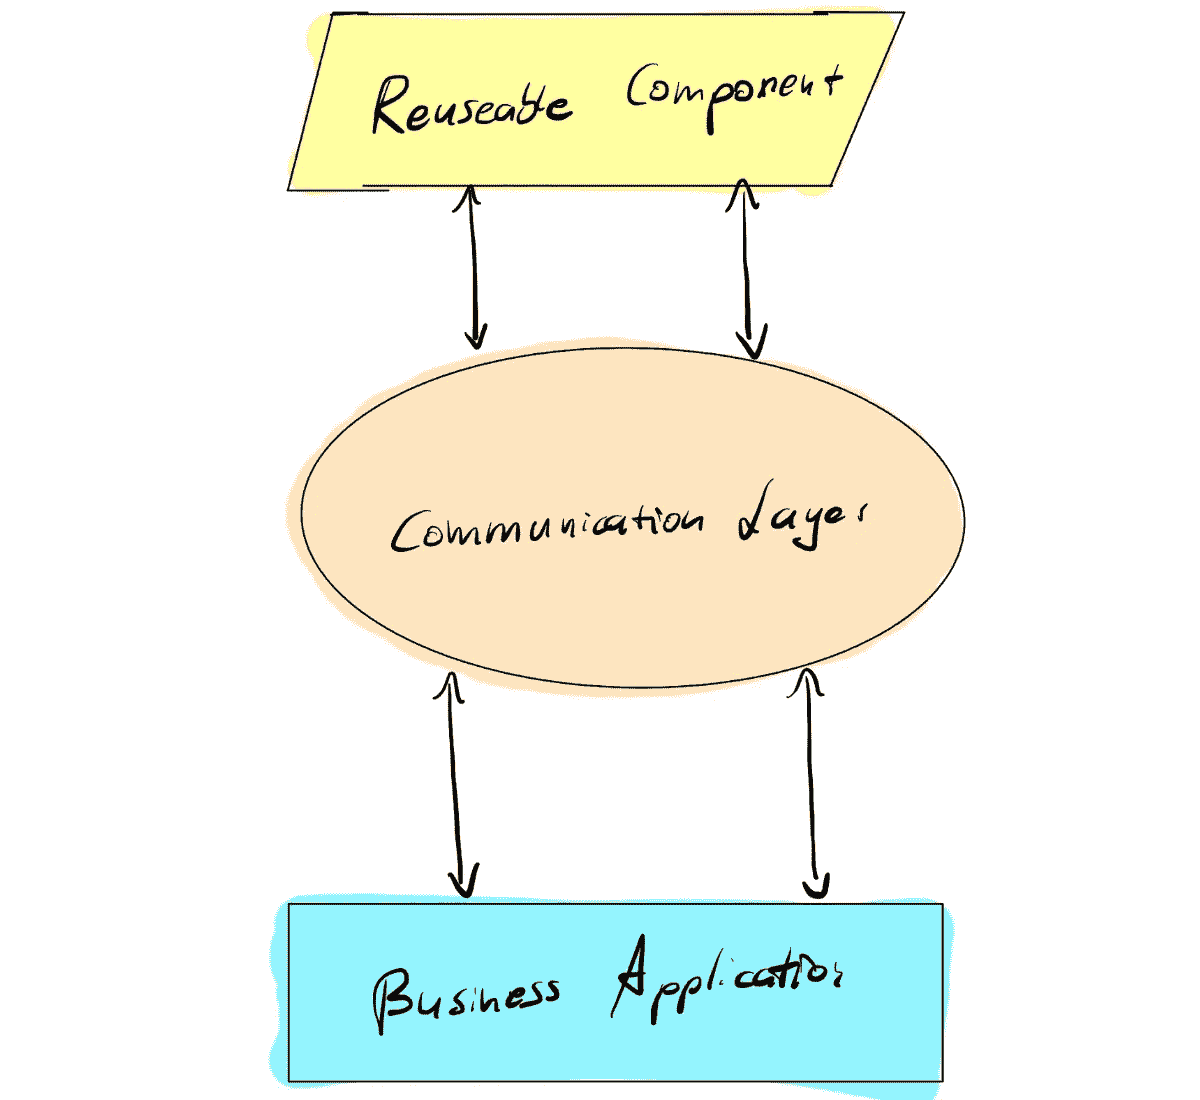 Reuseable Component
Communication Layer
Business Application